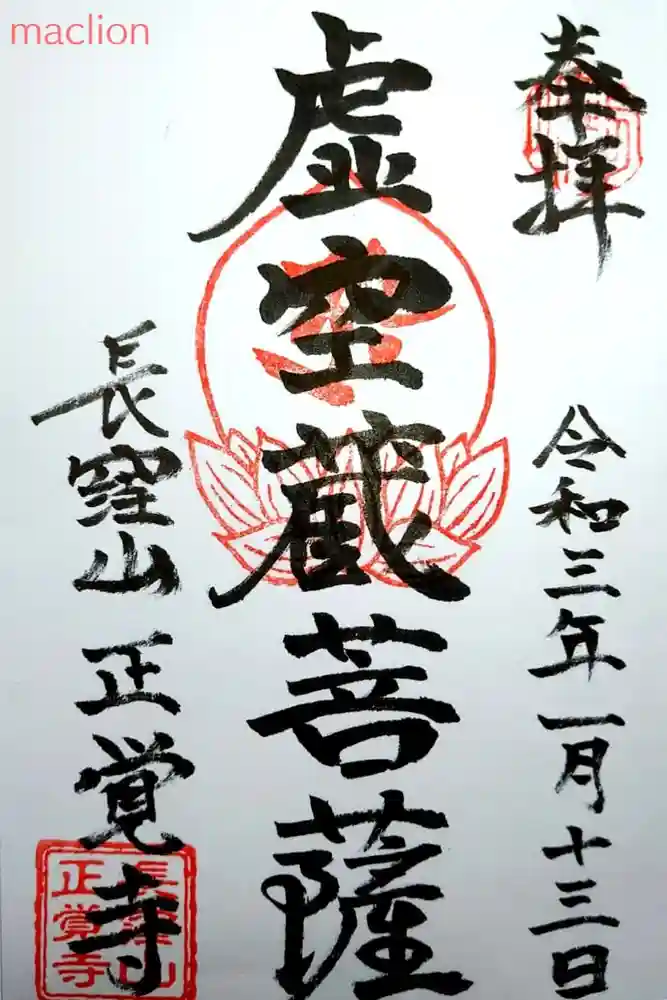 maclion
奉拝
令和三年一月十三日
虚空蔵菩薩
長窪山 正覚寺
長窪山
正覚寺